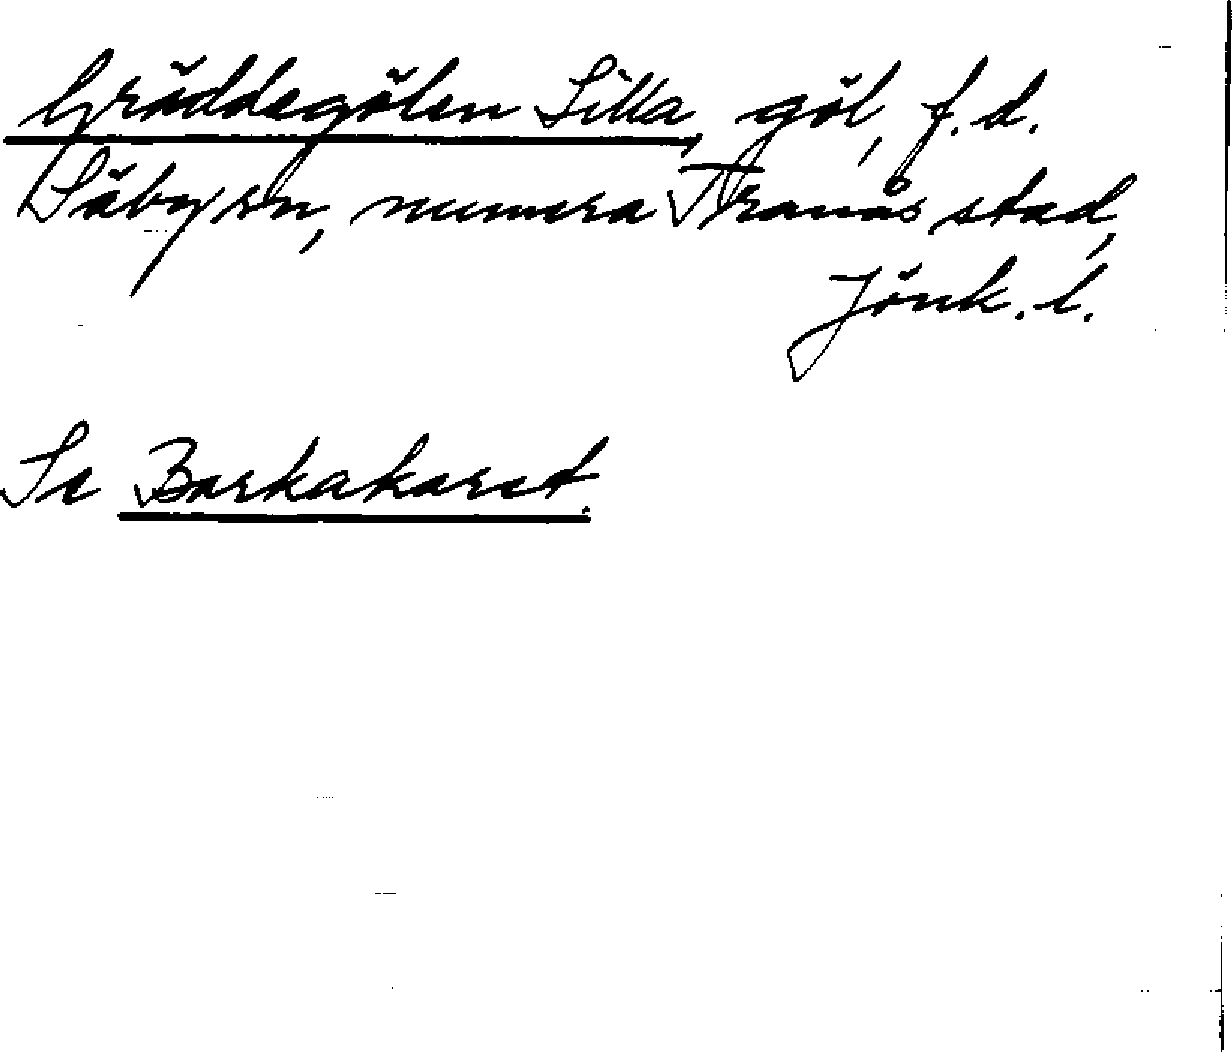 Gräddegölen Lilla, göl, f.d.
Säby sn, numera Tranås stad,
Jönk. l.
Se Barkakaret.